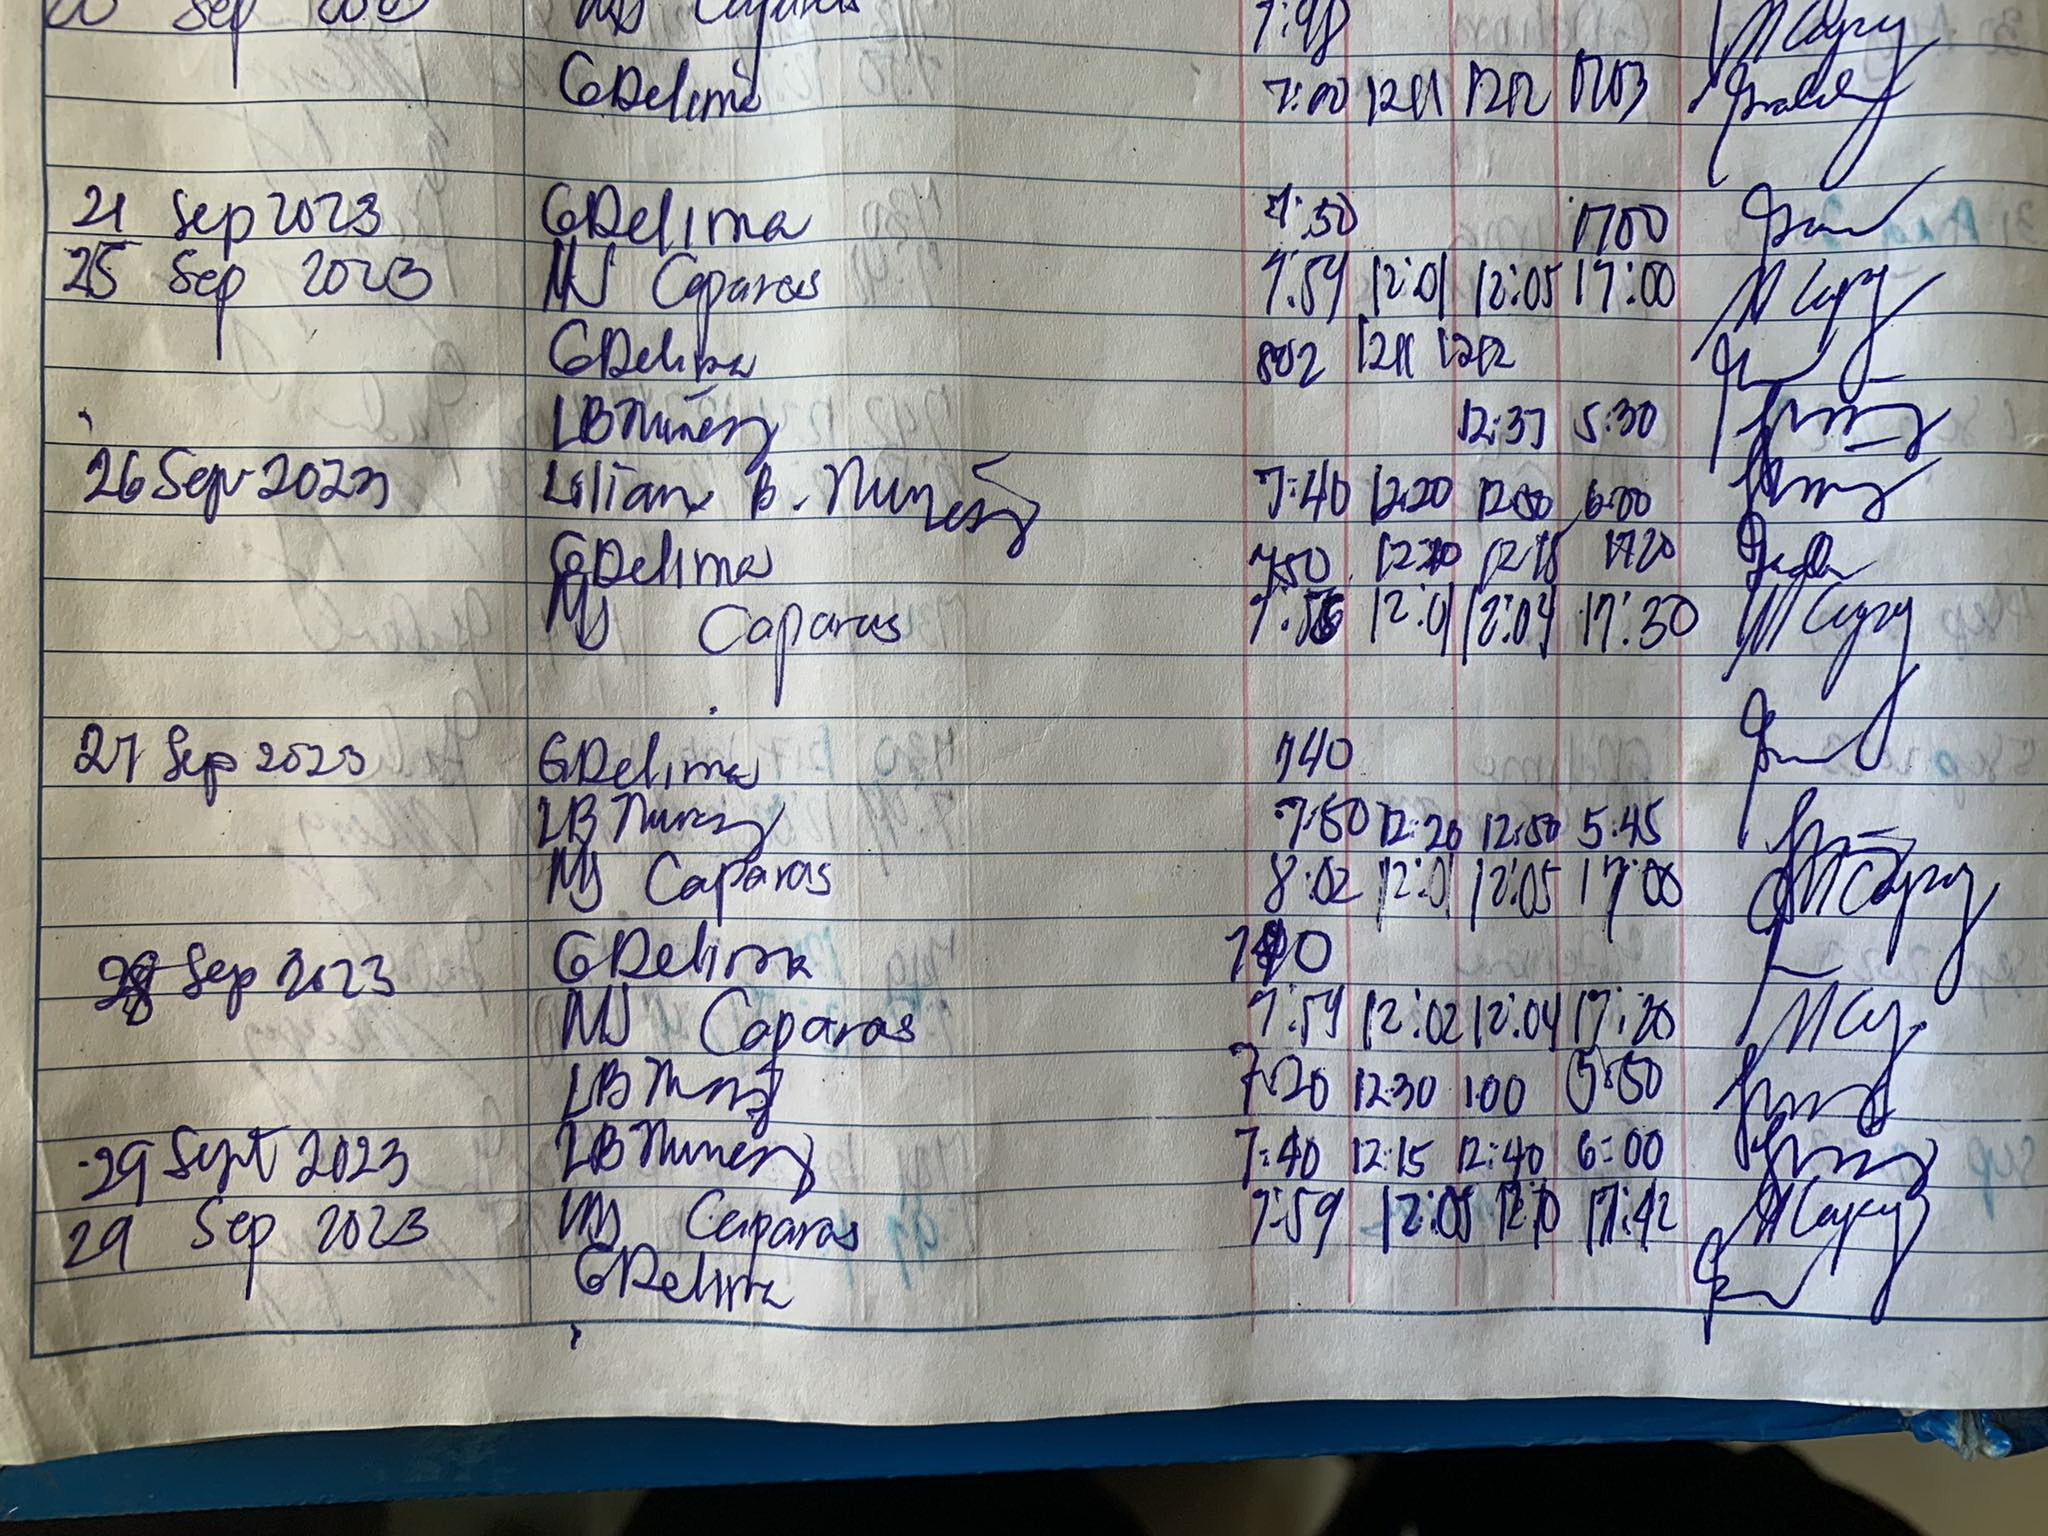 Sep MS Caparas 7:48
GDelima 7:00 1211 1212 1703
21 Sep 2023 GDelima 7:50 1700
25 Sep 2023 MJ Caparas 7:59 12:01 12:05 17:00
GDelima 802 1211 1212
LB Nuñez 12:37 5:30
26 Sep 2023 Lilian B. Nuñez 7:40 12:20 6:00
GDelima 750 1720
MJ Caparas 12:01 12:04 17:30
27 Sep 2023 GDelima 740
LB Nunez 7:50 12:20 12:50 5:45
MJ Caparas 8:02 12:01 12:05 17:00
28 Sep 2023 GDelima
MJ Caparas 7:59 12:02 12:04 17:20
LB Nunez 7:20 12:30 1:00 5:50
29 Sept 2023 LB Nunez 7:40 12:15 12:40 6:00
29 Sep 2023 MJ Caparas 7:59 17:42
GDelima